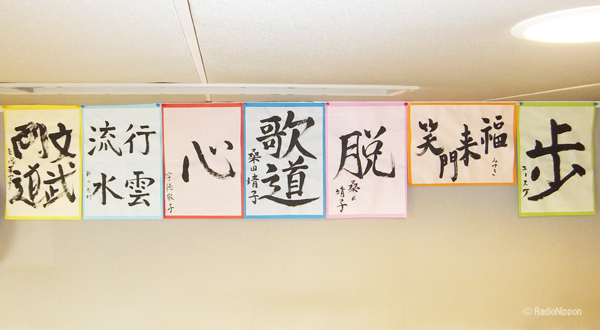 文武
両道
行雲
流水
心
宇徳敬子
歌道
桑田靖子
脱
桑田
靖子
笑門来福
歩
ユースケ
© RadioNippon